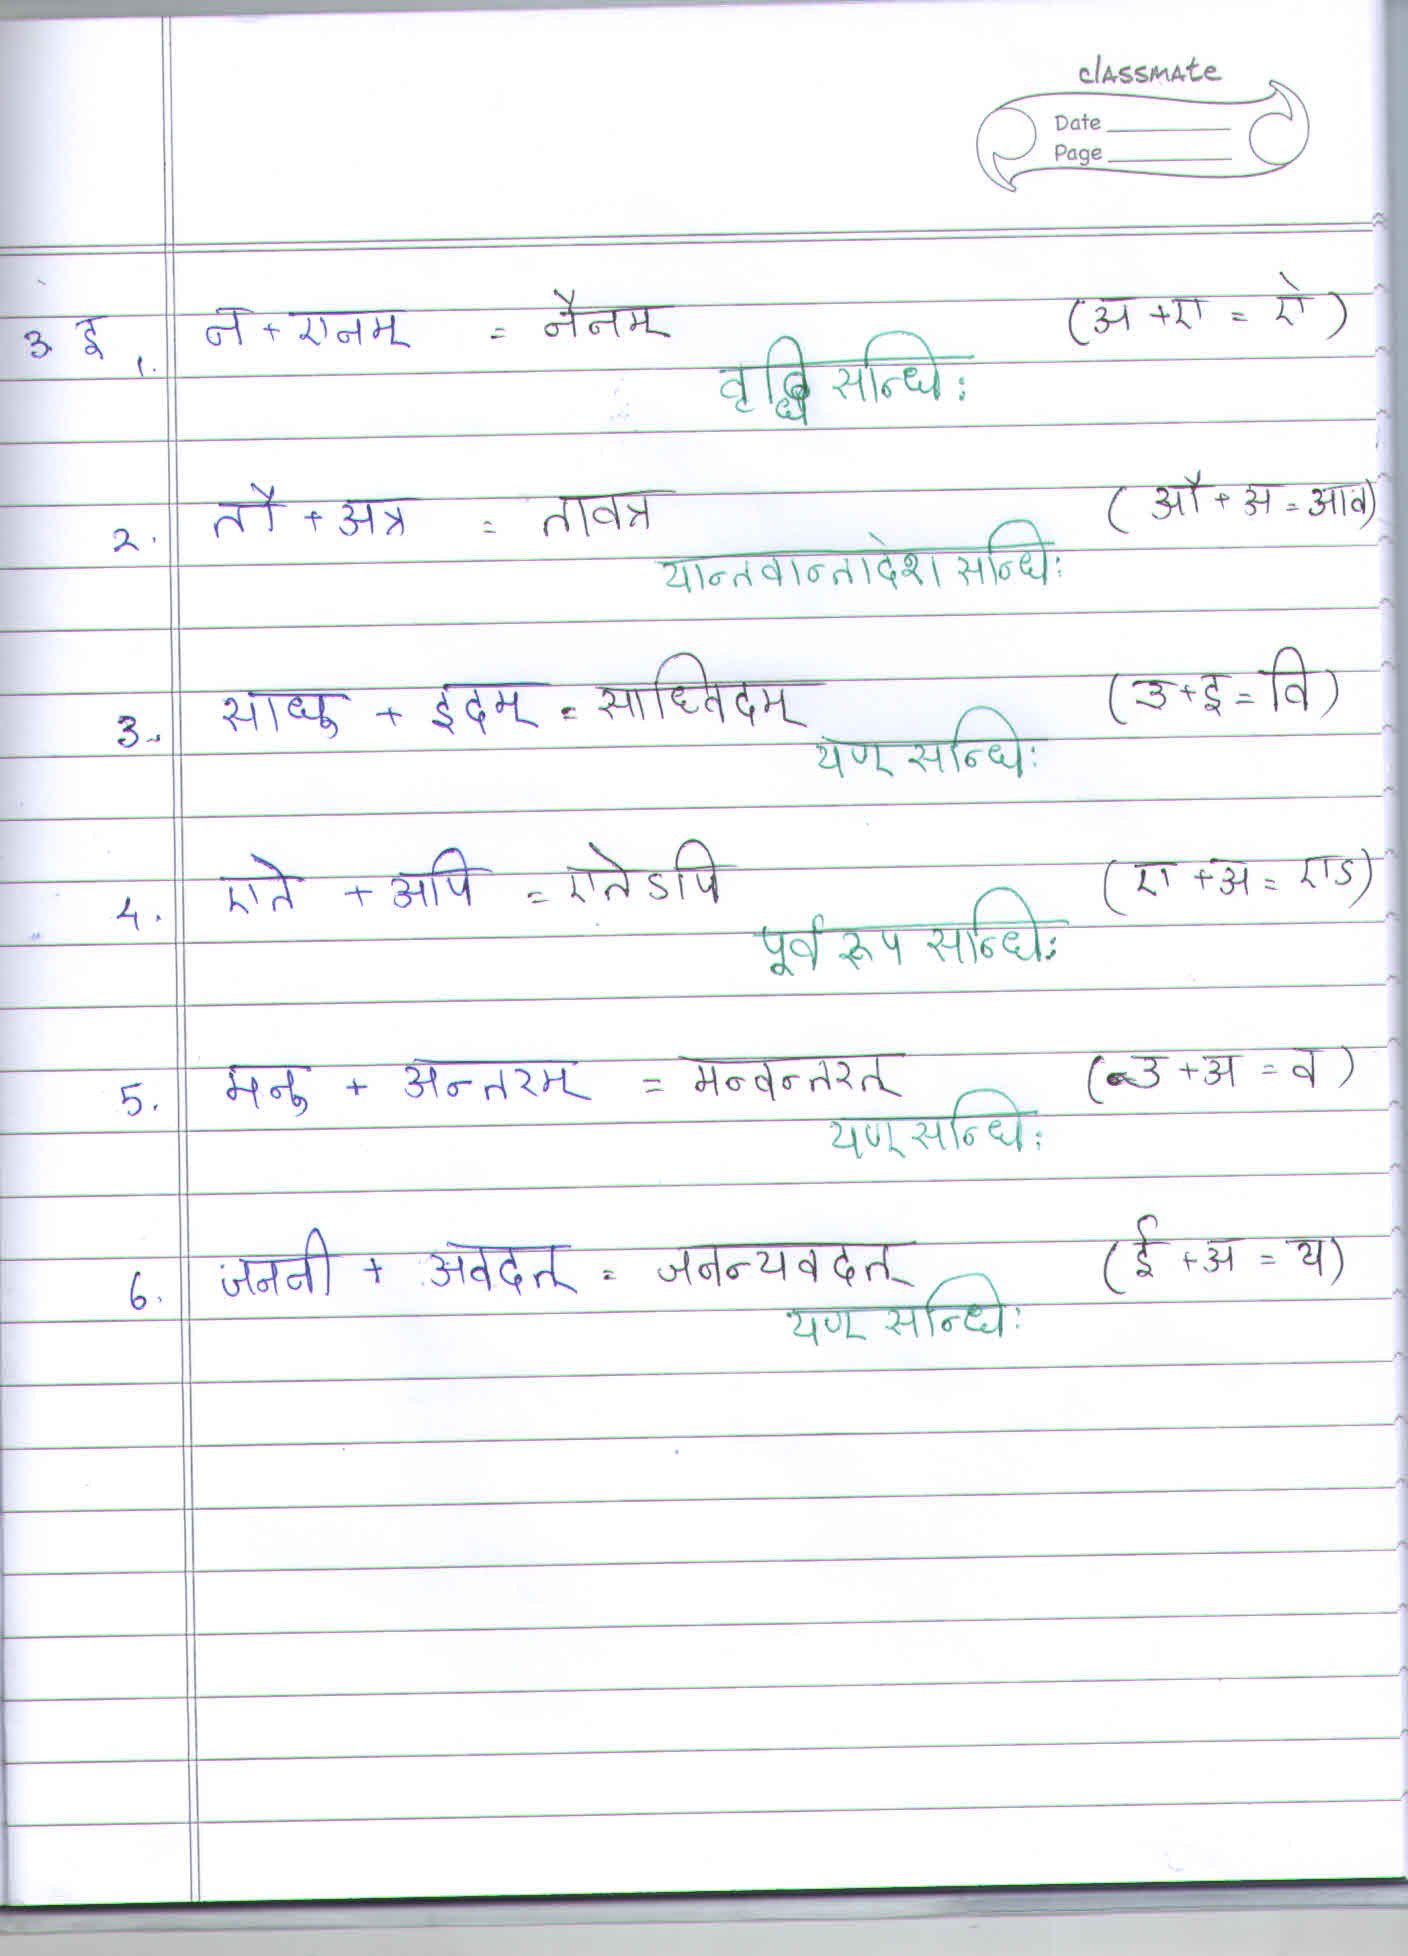 classmate
Date
Page
3. इ
1. न + एनम् = नैनम् (अ + ए = ऐ)
वृद्धि सन्धिः
2. तौ + अत्र = तावत्र (औ + अ = आव)
यान्तवान्तादेश सन्धिः
3. साधु + इदम् = साध्विदम् (उ + इ = वि)
यण् सन्धिः
4. एते + अपि = एतेऽपि (ए + अ = एऽ)
पूर्व रूप सन्धिः
5. मनु + अन्तरम् = मन्वन्तरत् (उ + अ = व)
यण् सन्धिः
6. जननी + अवदत् = जनन्यवदत् (ई + अ = य)
यण् सन्धिः